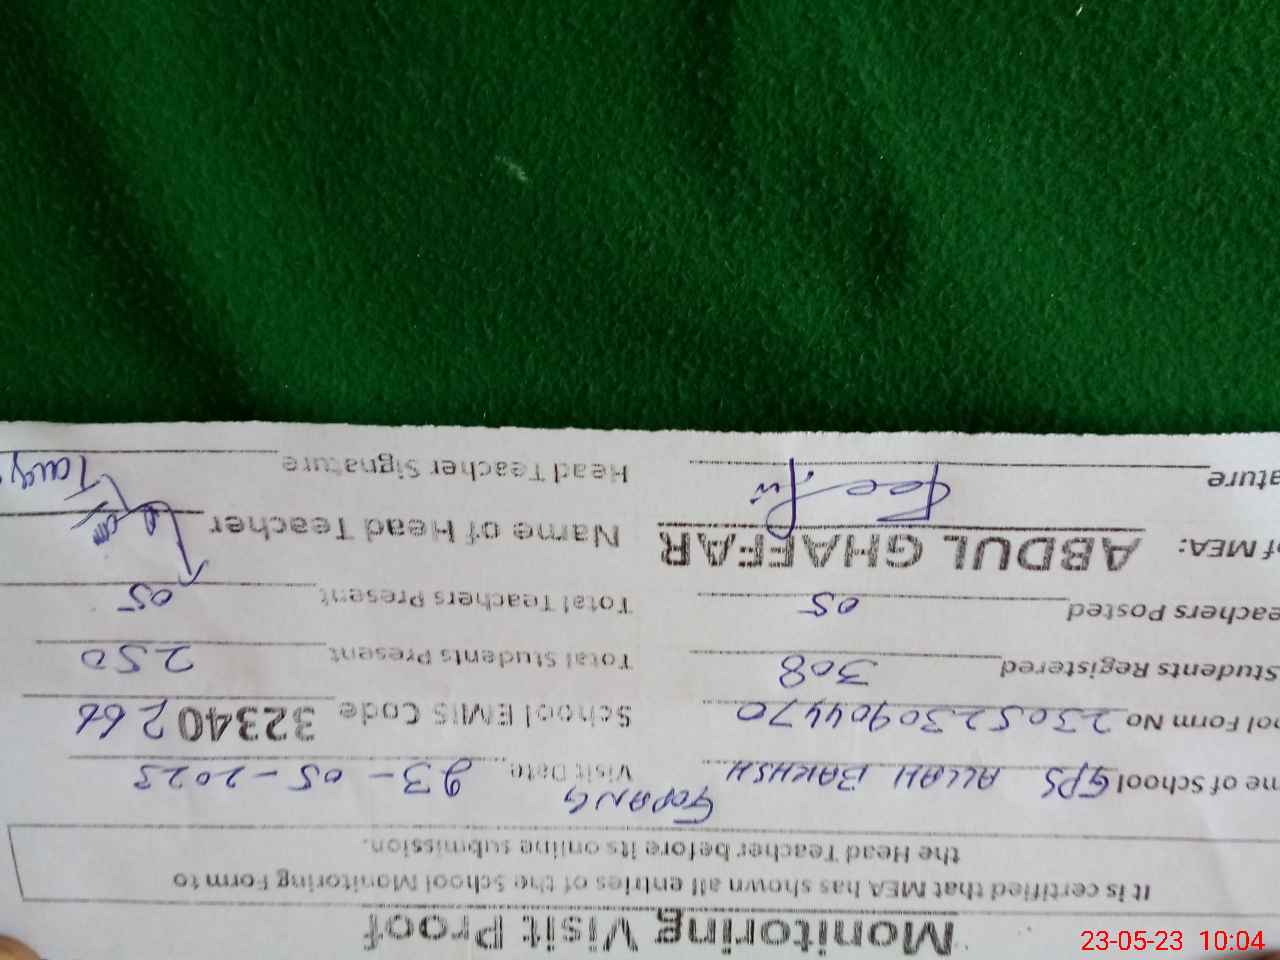 Monitoring Visit Proof
It is certified that MEA has shown all entries of the School Monitoring Form to
the Head Teacher before its online submission.
me of School GPS ALLAH BAKHSH GOPANG Visit Date 23-05-2023
ool Form No 2305230904470 School EMIS Code 32340266
Students Registered 308 Total Students Present 250
eachers Posted 05 Total Teachers Present 05
of MEA: ABDUL GHAFFAR Name of Head Teacher
ature Head Teacher Signature
23-05-23 10:04